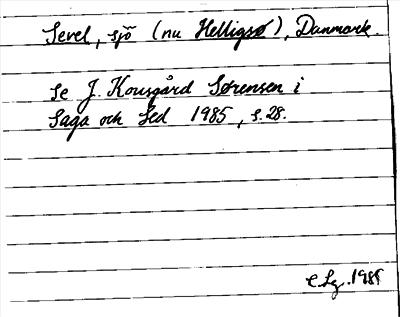 Sevel, sjö (nu Helligsø), Danmark.
Se J. Kousgård Sørensen i
Saga och Sed 1985, s. 28.
C.Lg. 1985